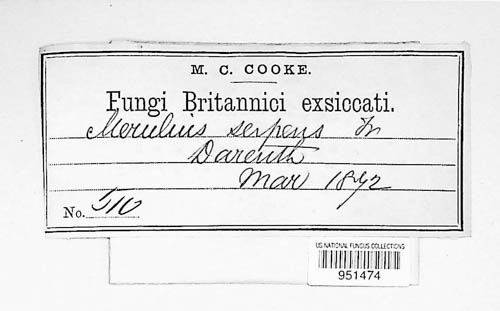 M. C. COOKE.
Fungi Britannici exsiccati.
Merulius serpens Fr
Darenth
Mar 1872
No. 510
US NATIONAL FUNGUS COLLECTIONS
951474